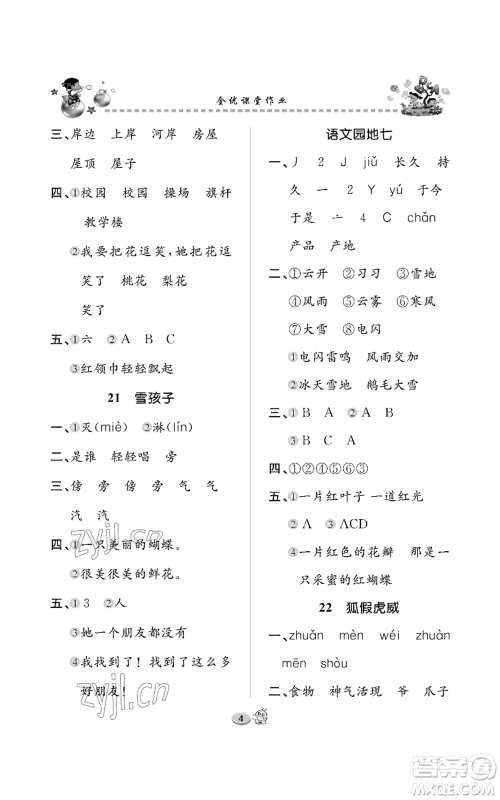 全优课堂作业
三、岸边 上岸 河岸 房屋
屋顶 屋子
四、①校园 校园 操场 旗杆
教学楼
②我要把花逗笑,花逗
笑了 桃花 梨花
笑了
五、①六 ②A B C
③红领巾轻轻飘起
21 雪孩子
一、①灭(miè) ②淋(lín)
二、是谁 轻轻唱 旁
三、傍 旁 旁 气 气
汽 汽
四、①一只美丽的蝴蝶。
②很美很美的鲜花。
五、①3 ②人
③她一个朋友都没有
④我找到了!我找到了这么多
好朋友!
语文园地七
一、丿 2 J jiǔ 长久 持
久 一 2 Y yú 于今
于是 亠 4 C chǎn
产品 产地
二、①云开 ②习习 ③雪地
④风雨 ⑤云雾 ⑥寒风
⑦大雪 ⑧电闪
①电闪雷鸣 风雨交加
②冰天雪地 鹅毛大雪
三、①B A ②A B
③B C
四、①②④⑤⑥③
五、①一片红叶子 一道红光
②A ③ACD
④一片红色的花瓣 那是一
只采蜜的红蝴蝶
22 狐假虎威
一、zhuǎn mèn wéi zhuàn
mēn shòu
二、食物 神气活现 爷 爪子
4
zyjl.cn
zyjl.cn
答案圈
MXQE.COM